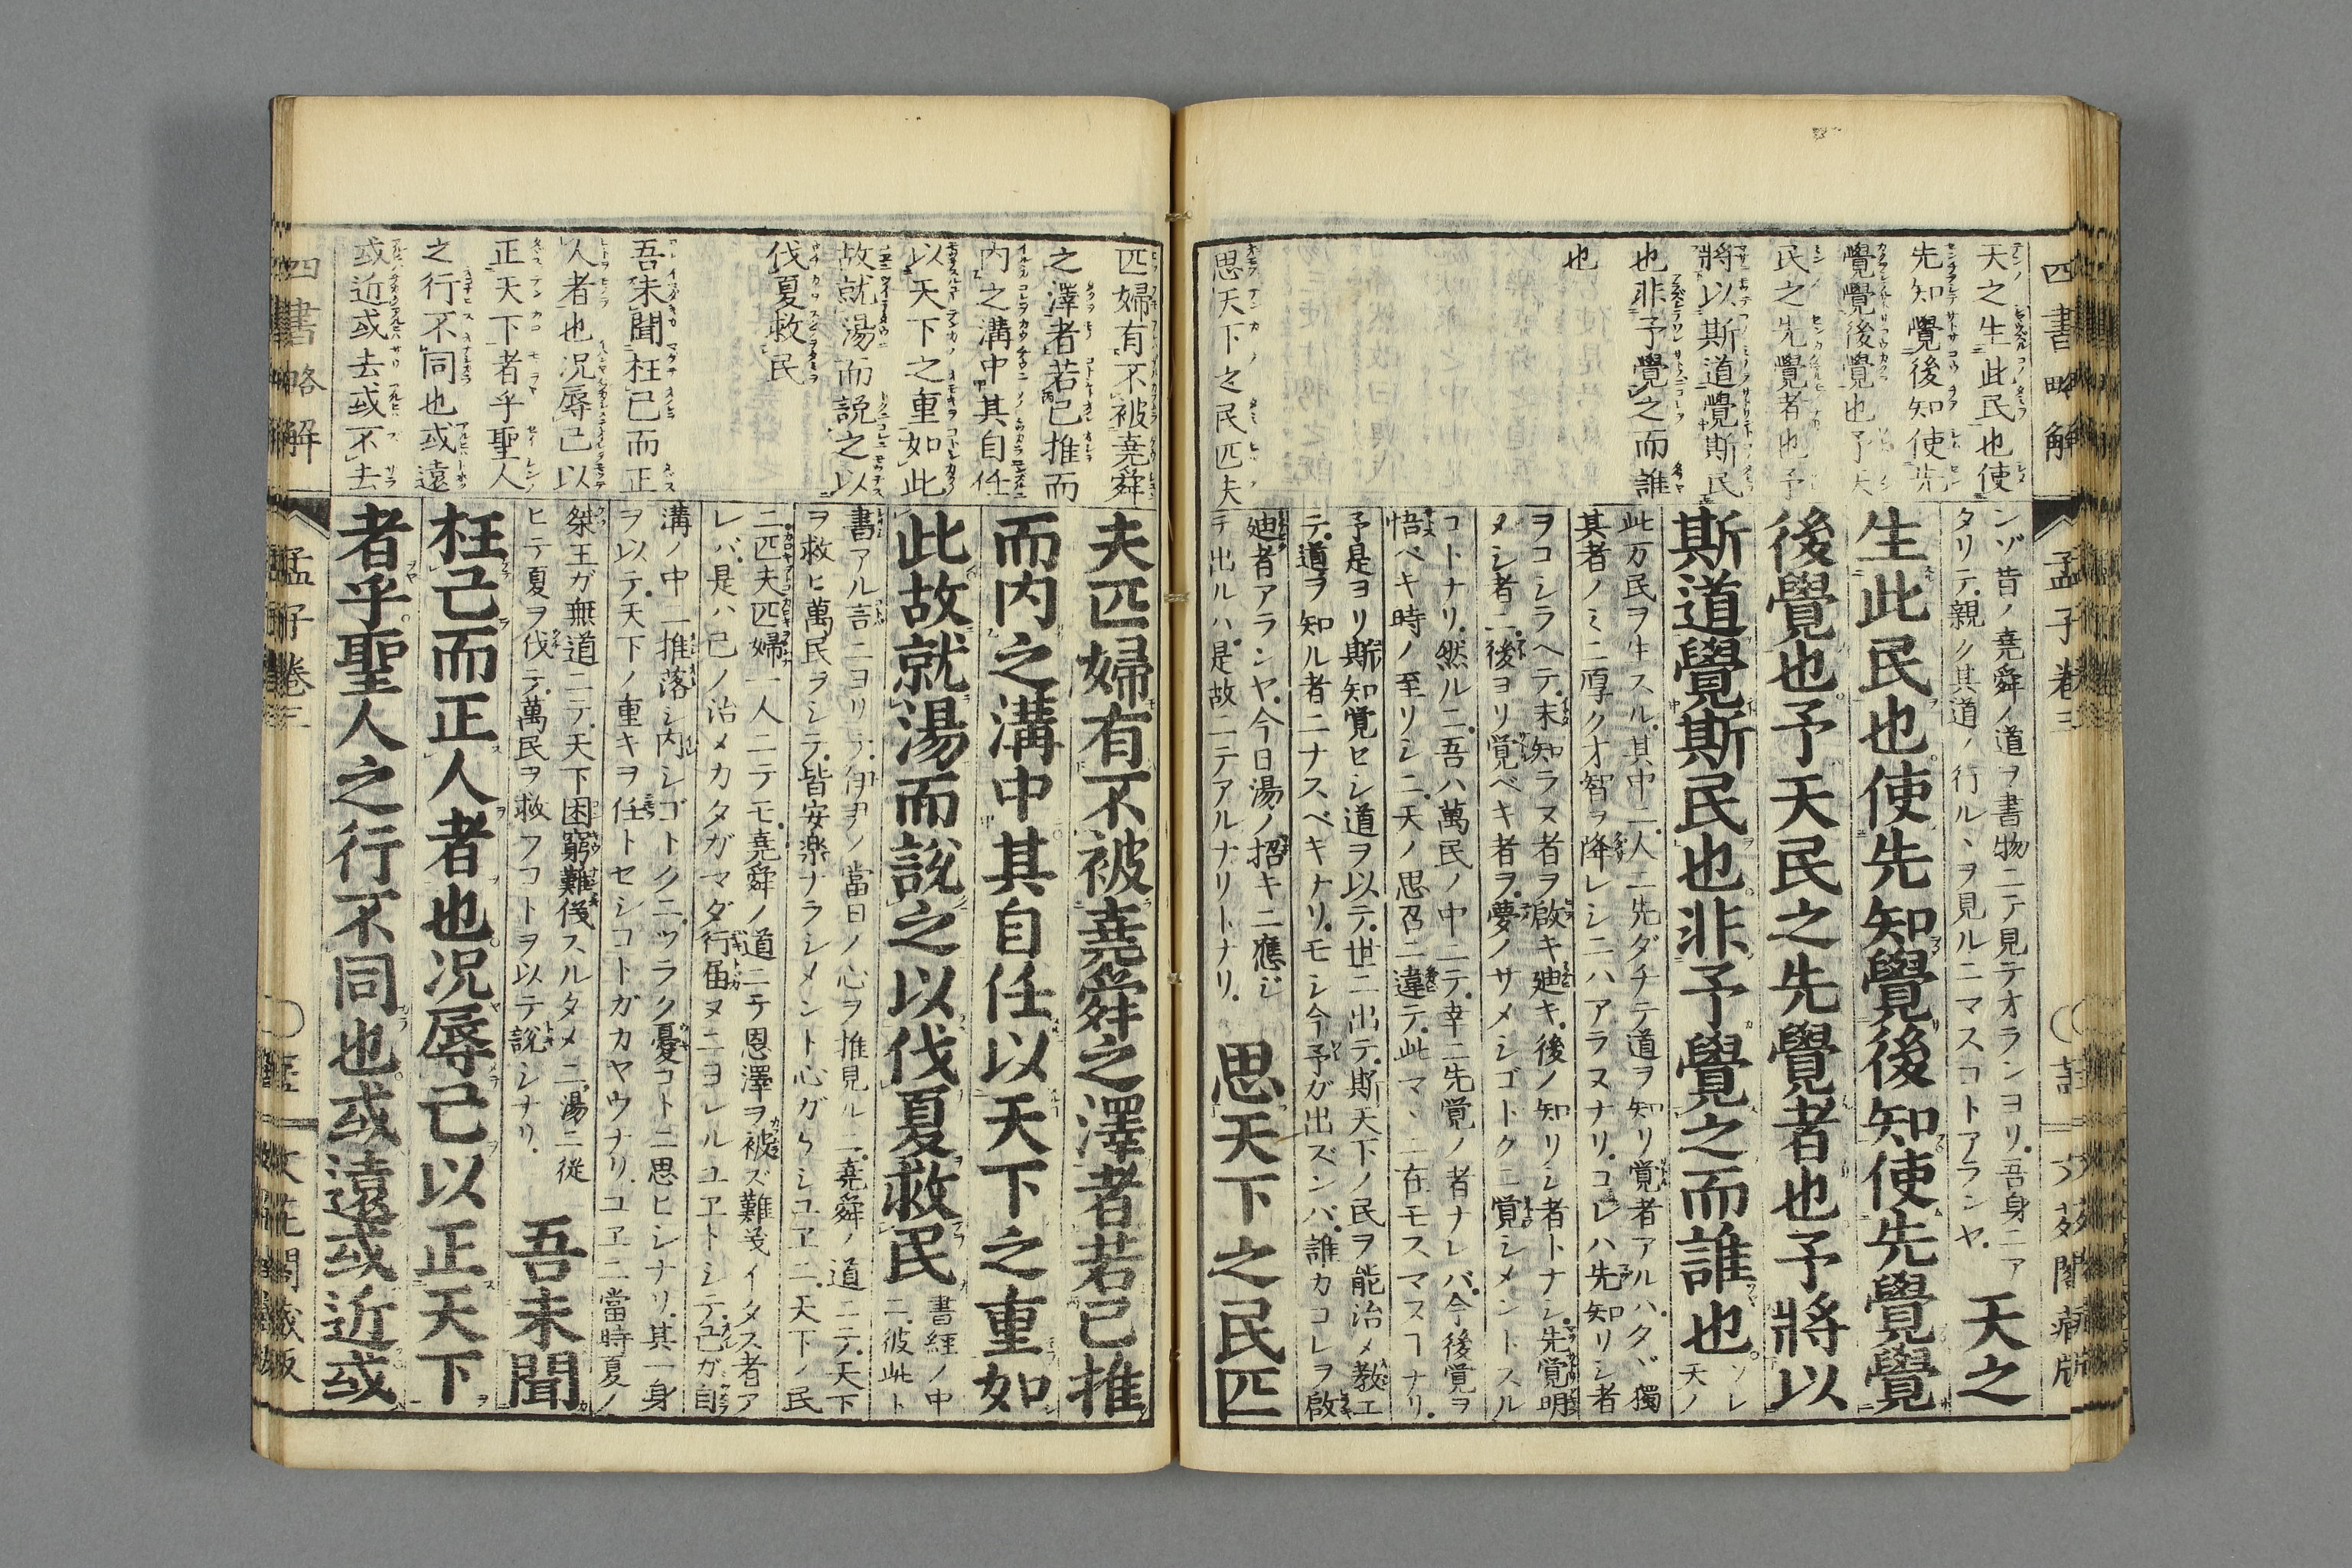 四書略解
孟子卷三
天之生此民也使
先知覺後知使先
覺覺後覺也予天
民之先覺者也予
將以斯道覺斯民
也非予覺之而誰
也
思天下之民匹夫
ンゾ昔ノ堯舜ノ道ヲ書物ニテ見テオランヨリ吾身ニア
タリテ親ク其道ノ行ルヽヲ見ルニマスコトアランヤ
天之
生此民也使先知覺後知使先覺覺
後覺也予天民之先覺者也予將以
斯道覺斯民也非予覺之而誰也
ソレ
天ノ
此万民ヲ生スル其中ニ一人ニ先ダチテ道ヲ知リ覚者アルハタヾ獨
其者ノミニ厚ク才智ヲ降レシニハアラヌナリコレハ先知リシ者
ヲコシラヘテ末知ラヌ者ヲ啟キ廸キ後ノ知リシ者トナシ先覚明
メシ者ニ後ヨリ覚ベキ者ヲ夢ノサメシゴトクニ覚シメントスル
コトナリ然ルニ吾ハ萬民ノ中ニテ幸ニ先覚ノ者ナレバ今後覚ヲ
悟ベキ時ノ至リシニ天ノ思召ニ違テ此マヽニ在モスマスヿナリ
予是ヨリ斯知覚セシ道ヲ以テ世ニ出テ斯天下ノ民ヲ能治メ教エ
テ道ヲ知ル者ニナスベキナリモシ今予ガ出ズンバ誰カコレヲ啟
廸者アランヤ今日湯ノ招キニ應ジ
テ出ルハ是故ニテアルナリトナリ
思天下之民匹
匹婦有不被堯舜
之澤者若已推而
內之溝中其自任
以天下之重如此
故就湯而説之以
伐夏救民
吾未聞枉己而正
人者也况辱己以
正天下者乎聖人
之行不同也或遠
或近或去或不去
夫匹婦有不被堯舜之澤者若已推
而内之溝中其自任以天下之重如
此故就湯而說之以伐夏救民
書経ノ中
ニ彼此ト
書アル言ニヨリテ伊尹ノ當日ノ心ヲ推見ルニ堯舜ノ道ニテ天下
ヲ救ヒ萬民ヲシテ皆安楽ナラシメント心ガケシユヱニ天下ノ民
ニ匹夫匹婦一人ニテモ堯舜ノ道ニテ恩澤ヲ被ズ難美イタス者ア
レバ是ハ己ノ治メカタガマダ行届ヌニヨレルユヱトシテ己ガ自
溝ノ中一推落シ内シゴトクニツラク憂コトニ思ヒシナリ其一身
ヲ以テ天下ノ重キヲ任トセシコトガカヤウナリユヱニ當時夏ノ
桀王ガ無道ニテ天下困窮難侭スルタメニ湯ニ従
ヒテ夏ヲ伐テ萬民ヲ救フコトヲ以テ説シナリ
吾未聞
枉己而正人者也况辱己以正天下
者乎聖人之行不同也或遠或近或
四書略解
孟子卷三